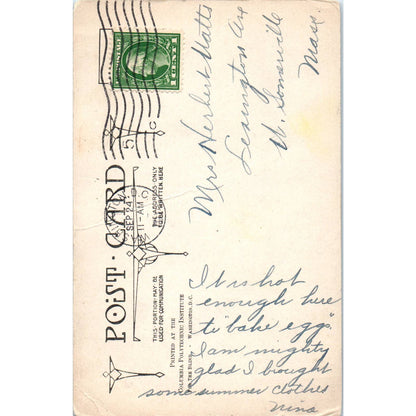 U.S. POSTAGE
1 CENT 1
SEP 24
11-AM
POST CARD
THIS PORTION MAY BE
USED FOR COMMUNICATION
THE ADDRESS ONLY
TO BE WRITTEN HERE
PRINTED AT THE
COLUMBIA POLYTECHNIC INSTITUTE
FOR THE BLIND, WASHINGTON, D.C.
Mrs Herbert Watts
Lexington Ave
W. Somerville
Mass.
It is hot
enough here
to "bake eggs".
I am mighty
glad I bought
some summer clothes
Nina